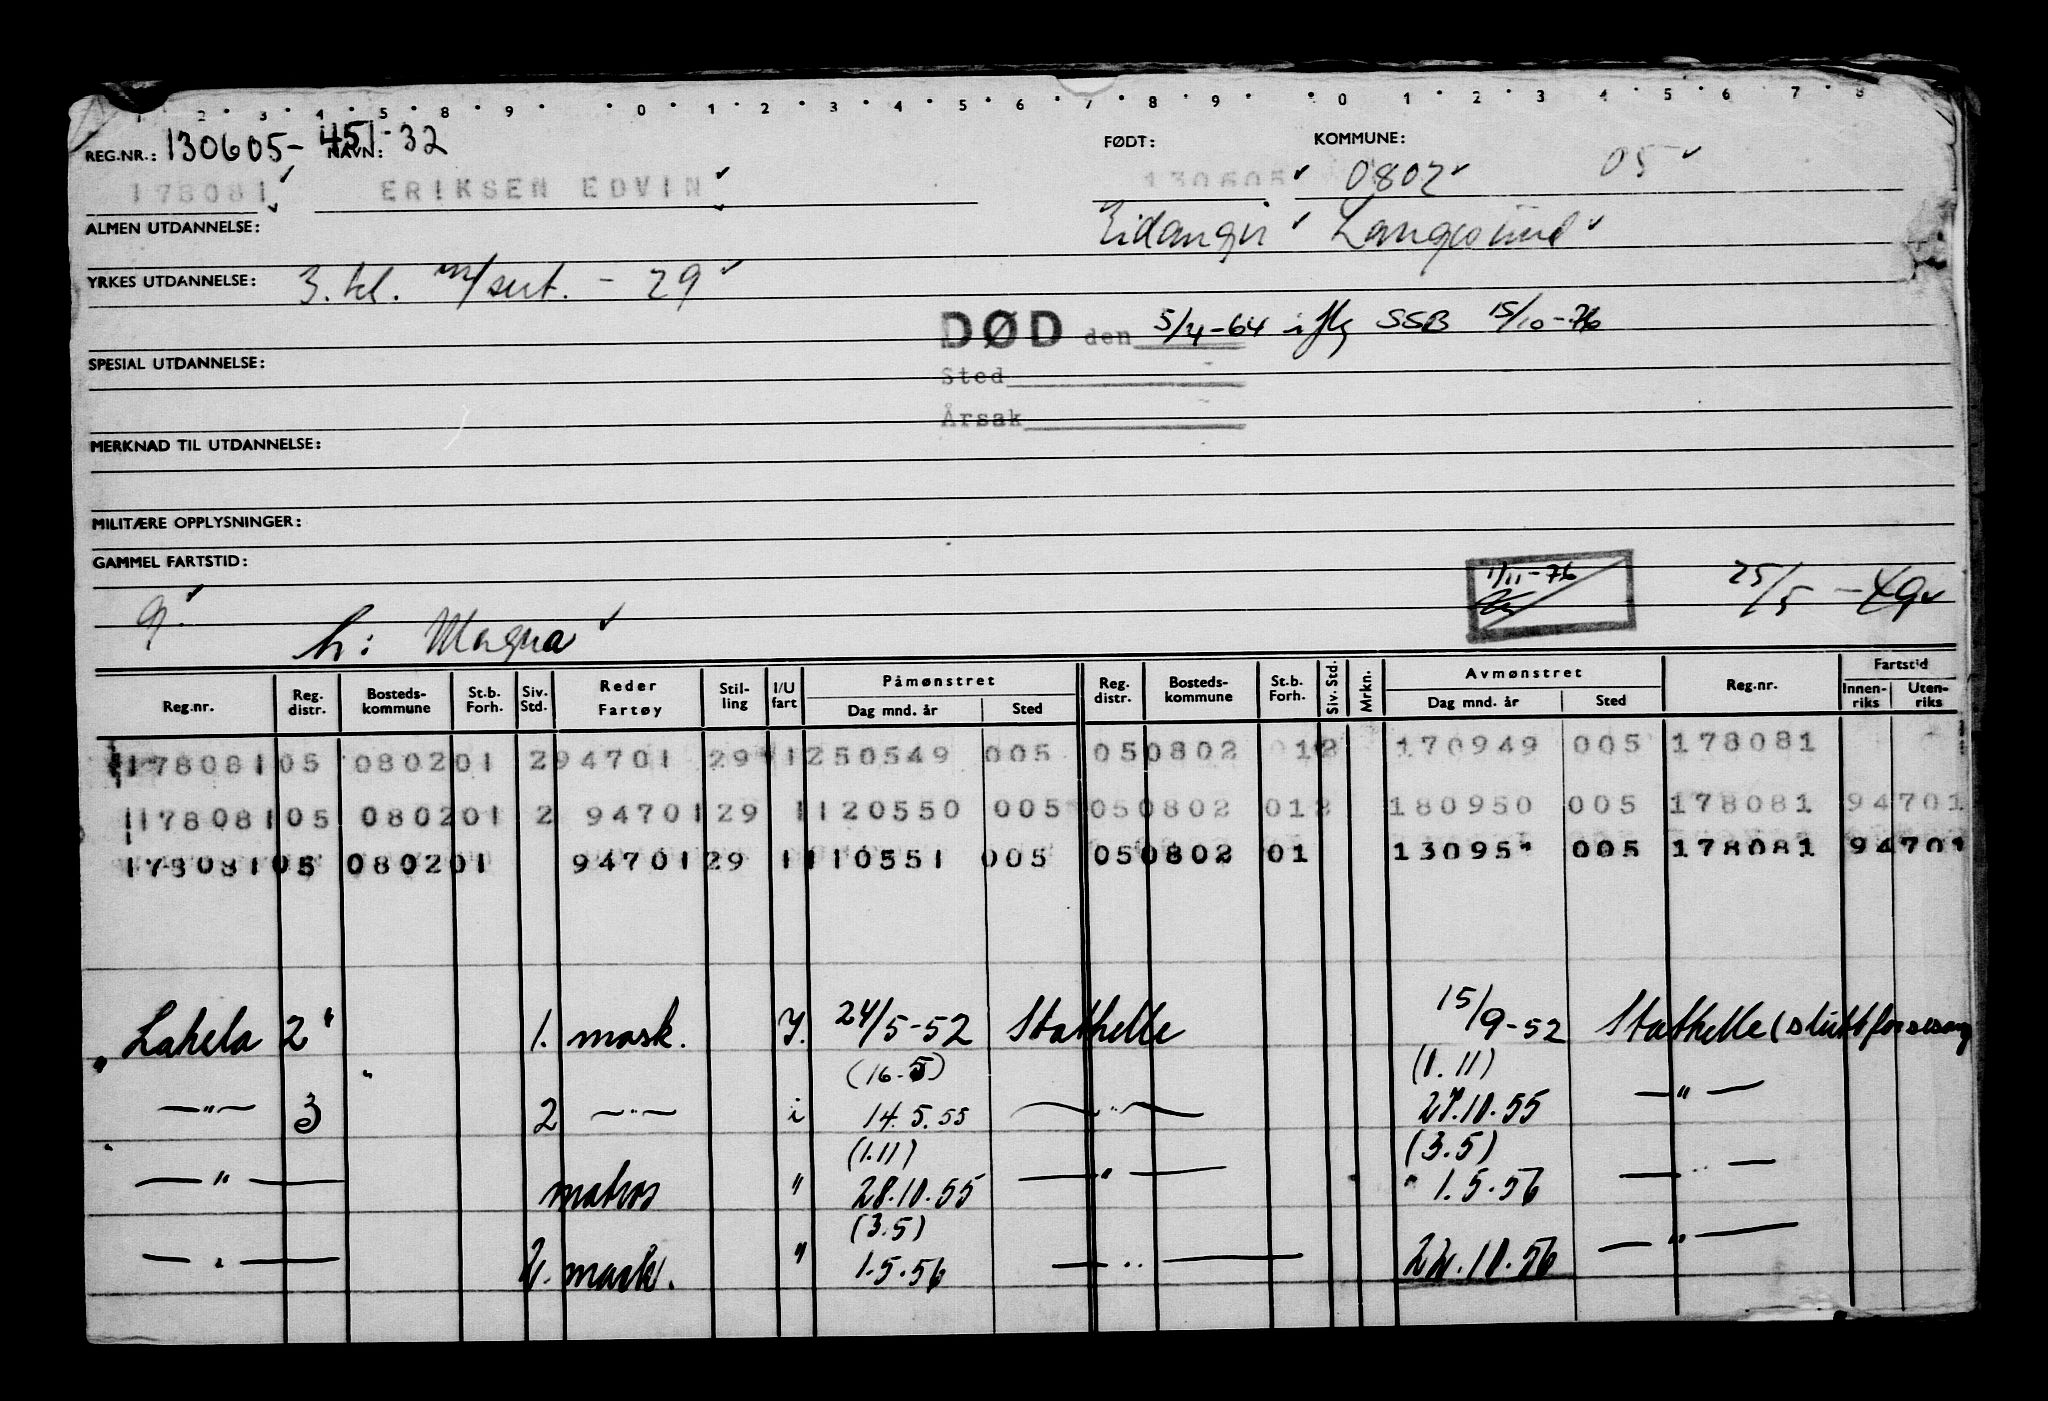 1 2 3 4 5 8 9 0 1 2 3 4 5 6 7 8 9 0 1 2 3 4 5 6 7 8
REG.NR.: 130605-451-32 NAVN: FØDT: KOMMUNE:
178081 ERIKSEN EDVIN 130605 0802 05
ALMEN UTDANNELSE: Eidanger Langesund
YRKES UTDANNELSE: 3. kl. m/sert. - 29
DØD den 5/4-64 iflg SSB 15/10-76
SPESIAL UTDANNELSE: Sted
Årsak
MERKNAD TIL UTDANNELSE:
MILITÆRE OPPLYSNINGER:
GAMMEL FARTSTID:
11/11-76 25/5-49
g. h: Magna
Reg.nr. Reg. distr. Bosteds-kommune St.b. Forh. Siv. Std. Reder Fartøy Stil-ling I/U fart Påmønstret Dag mnd. år Sted Reg. distr. Bosteds-kommune St.b. Forh. Siv. Std. Mrkn. Avmønstret Dag mnd. år Sted Reg.nr. Fartstid Innen-riks Uten-riks
178081 05 0802 01 2 94701 29 1 250549 005 05 0802 01 2 170949 005 178081
178081 05 0802 01 2 94701 29 1 120550 005 05 0802 01 2 180950 005 178081 94701
178081 05 0802 01 94701 29 1 110551 005 05 0802 01 13095 005 178081 94701
"Lahela 2" 1. mask. I. 24/5-52 Stathelle 15/9-52 Stathelle (slutt for sesong
(16-5) (1.11)
—"— 3 2 —"— i 14.5.55 —"— 27.10.55 —"—
(1.11) (3.5)
—"— matros " 28.10.55 —"— 1.5.56 —"—
(3.5)
—"— 2. mask. " 1.5.56 —"— 22.10.56 —"—